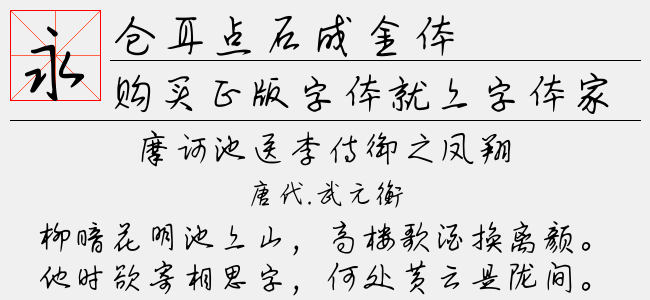 永
仓耳点石成金体
购买正版字体就上字体家
摩诃池送李侍御之凤翔
唐代.武元衡
柳暗花明池上山，高楼歌酒换离颜。
他时欲寄相思字，何处黄云是陇间。